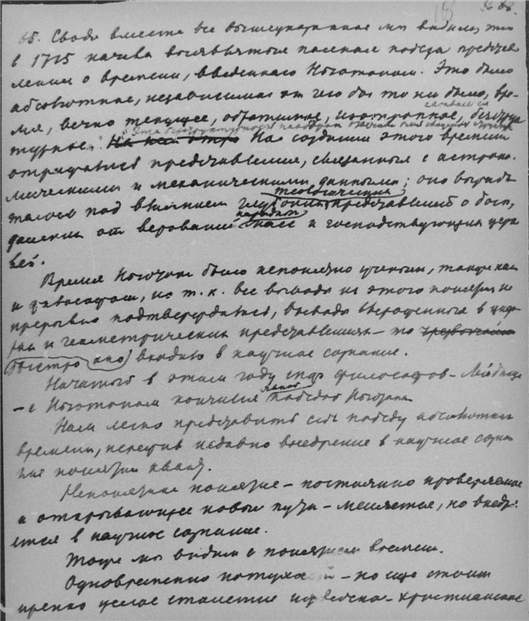 65. Сводя вместе все вышеуказанное мы видим, что
в 1715 начива
ления о времени, введенного Ньютоном. Это было
абсолютное, независимое от чего бы то ни было, вре-
мя, вечно текущее, изотропное,
турное. На создании этого времени
отразились представления, связанные с астроно-
мическими и механическими данными; оно
под влиянием теологических представлений о боге,
далеких от верований масс и господствующих церк
вей.
Время Ньютона было непонятно ученым, также как
и философам, но т. к. все выводы из этого понятия не
прерывно подтверждались, выводы выраженные в циф
рах и геометрических представлениях – то
быстро оно входило в научное сознание.
Начатый в этом году спор философов – Лейбница
– с Ньютоном кончился победой Ньютона
Нам легко представить себе победу абсолютного
времени, пережив недавно внедрение в научное созна
ние понятия кванта.
Непонятное понятие – постоянно проверяемое
и открывающее новые пути – меняется, но внедр
яется в научное сознание.
Тоже мы видим с понятием времени.
Одновременно – но еще стоит
крепко целое столетие еврейско-христианское